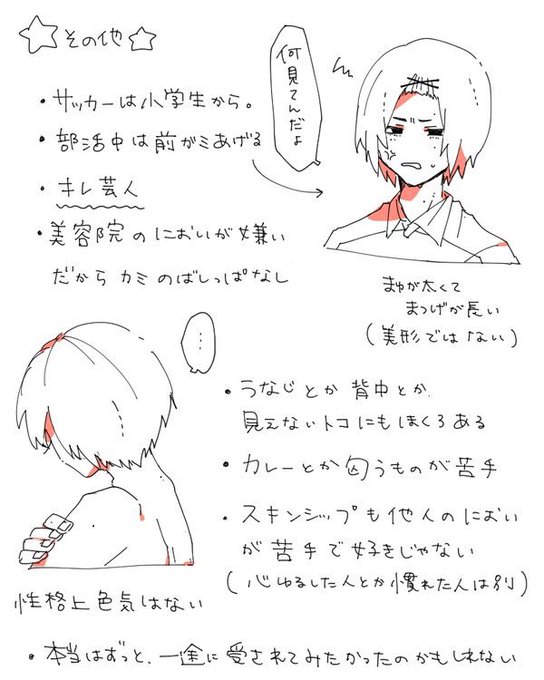 その他
・サッカーは小学生から。
・部活中は前がミあげる
・キレ芸人
・美容院のにおいが嫌い
だからカミのばしっぱなし
何見てんだよ
まゆが太くて
まつげが長い
(美形ではない)
…
性格上色気はない
・うなじとか背中とか
見えないトコにもほくろある
・カレーとか匂うものが苦手
・スキンシップも他人のにおい
が苦手で好きじゃない
(心ゆるした人とか慣れた人は別)
・本当はずっと、一途に愛されてみたかったのかもしれない